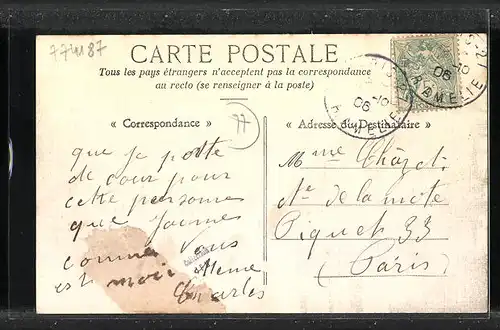 77487
CARTE POSTALE
Tous les pays étrangers n'acceptent pas la correspondance
au recto (se renseigner à la poste)
« Correspondance »
77
« Adresse du Destinataire »
que je porte
de cour pour
cette personnes
que
comme vous
est moi même
Charles
Mme
de la mote
Piquet 33
(Paris)
06
R. AMELIE
06
R. AMELIE